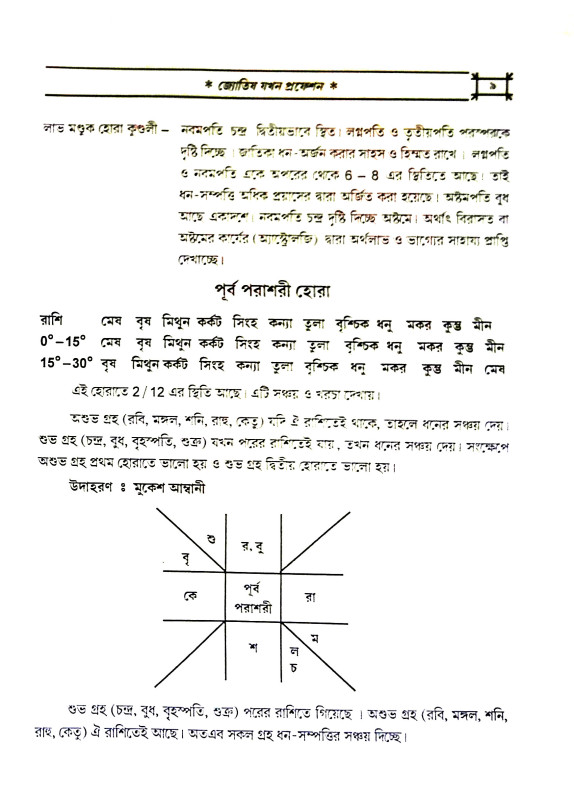 * জ্যোতিষ যখন প্রফেশন *
৯
লাভ মণ্ডুক হোরা কুণ্ডলী – নবমপতি চন্দ্র দ্বিতীয়ভাবে স্থিত। লগ্নপতি ও তৃতীয়পতি পরস্পরকে
দৃষ্টি দিচ্ছে । জাতিকা ধন-অর্জন করার সাহস ও হিম্মত রাখে । লগ্নপতি
ও নবমপতি একে অপরের থেকে 6 – 8 এর স্থিতিতে আছে। তাই
ধন-সম্পত্তি অধিক প্রয়াসের দ্বারা অর্জিত করা হয়েছে। অষ্টমপতি বুধ
আছে একাদশে। নবমপতি চন্দ্র দৃষ্টি দিচ্ছে অষ্টমে। অর্থাৎ বিরাসত বা
অষ্টমের কার্যের (অ্যাস্ট্রোলজি) দ্বারা অর্থলাভ ও ভাগ্যের সাহায্য প্রাপ্তি
দেখাচ্ছে।
পূর্ব পরাশরী হোরা
রাশি মেষ বৃষ মিথুন কর্কট সিংহ কন্যা তুলা বৃশ্চিক ধনু মকর কুম্ভ মীন
0°–15° মেষ বৃষ মিথুন কর্কট সিংহ কন্যা তুলা বৃশ্চিক ধনু মকর কুম্ভ মীন
15°–30° বৃষ মিথুন কর্কট সিংহ কন্যা তুলা বৃশ্চিক ধনু মকর কুম্ভ মীন মেষ
এই হোরাতে 2 / 12 এর স্থিতি আছে। এটি সঞ্চয় ও খরচা দেখায়।
অশুভ গ্রহ (রবি, মঙ্গল, শনি, রাহু, কেতু) যদি ঐ রাশিতেই থাকে, তাহলে ধনের সঞ্চয় দেয়।
শুভ গ্রহ (চন্দ্র, বুধ, বৃহস্পতি, শুক্র) যখন পরের রাশিতেই যায়, তখন ধনের সঞ্চয় দেয়। সংক্ষেপে
অশুভ গ্রহ প্রথম হোরাতে ভালো হয় ও শুভ গ্রহ দ্বিতীয় হোরাতে ভালো হয়।
উদাহরণ ঃ মুকেশ আম্বানী
শু
র. বু
বৃ
কে
পূর্ব
পরাশরী
রা
শ
ম
ল
চ
শুভ গ্রহ (চন্দ্র, বুধ, বৃহস্পতি, শুক্র) পরের রাশিতে গিয়েছে । অশুভ গ্রহ (রবি, মঙ্গল, শনি,
রাহু, কেতু) ঐ রাশিতেই আছে। অতএব সকল গ্রহ ধন-সম্পত্তির সঞ্চয় দিচ্ছে।